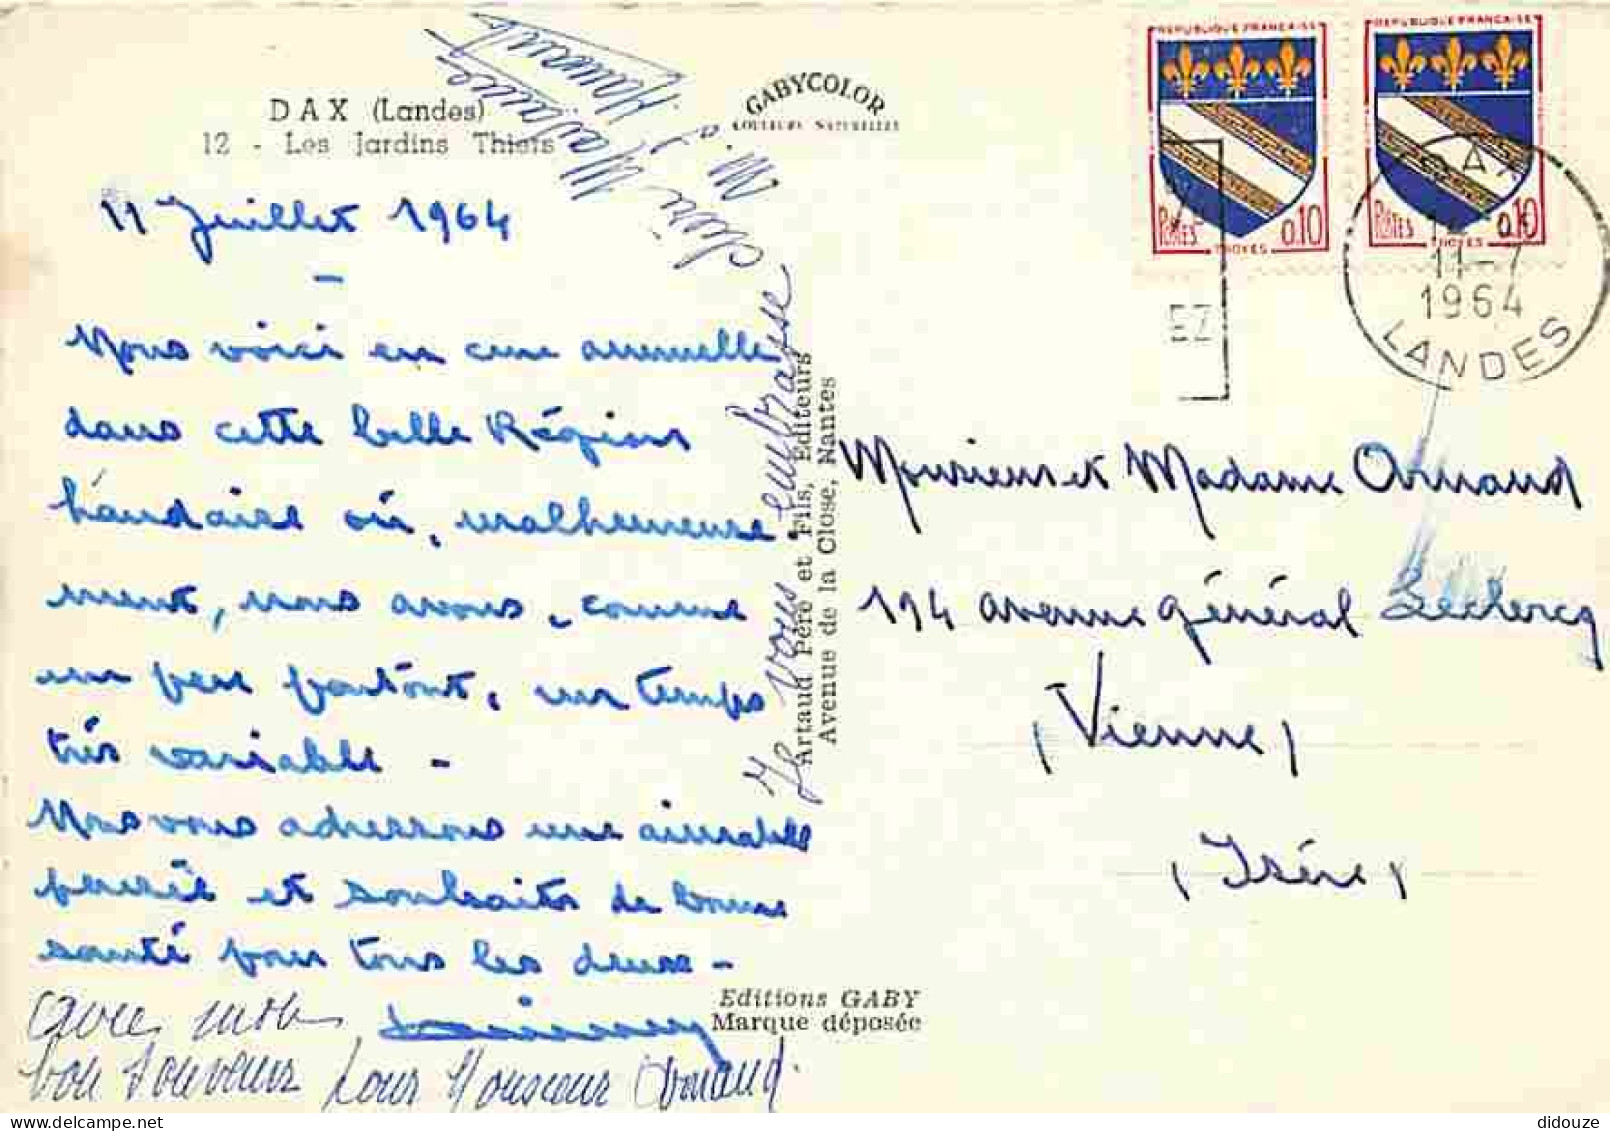 DAX (Landes)
12 - Les Jardins Thiers
11 Juillet 1964
-
Nous voici en cure annuelle
dans cette belle Région
landaise où, malheureuse-
ment, nous avons, comme
un peu partout, un temps
très variable -
Nous vous adressons une aimable
pensée et souhaits de bonne
santé pour tous les deux -
avec mon
bon souvenir pour Monsieur Arnaud.
vous embrasse
chère Madame
Arnaud
GABYCOLOR
COULEURS NATURELLES
Artaud Père et Fils, Editeurs
Avenue de la Close, Nantes
Editions GABY
Marque déposée
REPUBLIQUE FRANCAISE
POSTES 0.10
TROYES
REPUBLIQUE FRANCAISE
POSTES 0.10
TROYES
EZ
DAX
11-7
1964
LANDES
Monsieur et Madame Arnaud
194 avenue Général Leclercq
(Vienne)
(Isère)
didouze